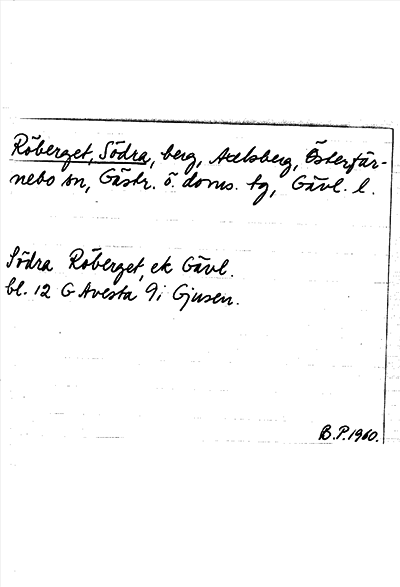 Röberget, Södra, berg, Axelsberg, Österfär-
nebo sn, Gästr. ö. doms. tg, Gävl. l.
Södra Röberget, ek Gävl.
bl. 12 G Avesta 9i Gjusen.
B.P. 1960.